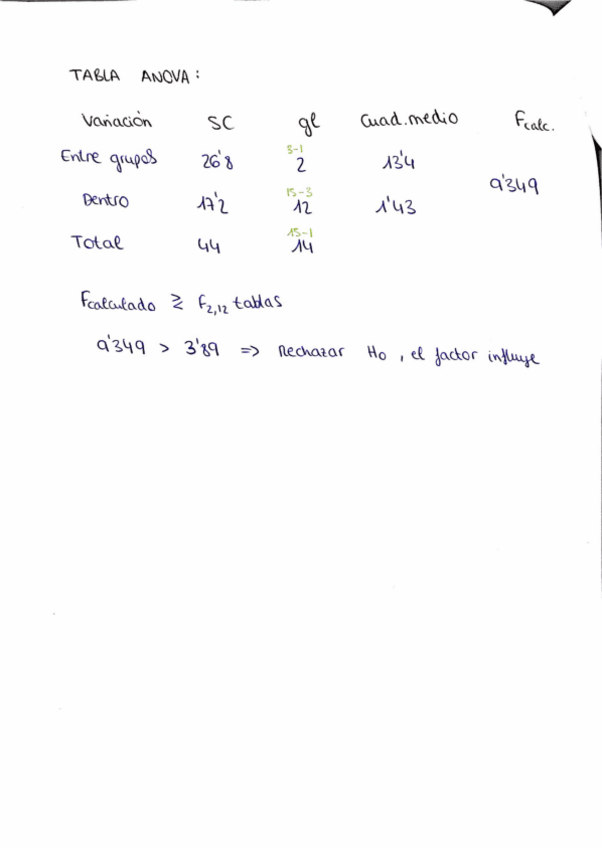 TABLA ANOVA:
Variación SC gl Cuad.medio Fcalc.
5-1
Entre grupos 26'8 2 13'4
9'349
15-3
Dentro 17'2 12 1'43
15-1
Total 44 14
Fcalculado ≥ F2,12 tablas
9'349 > 3'89 => Rechazar Ho, el factor influye